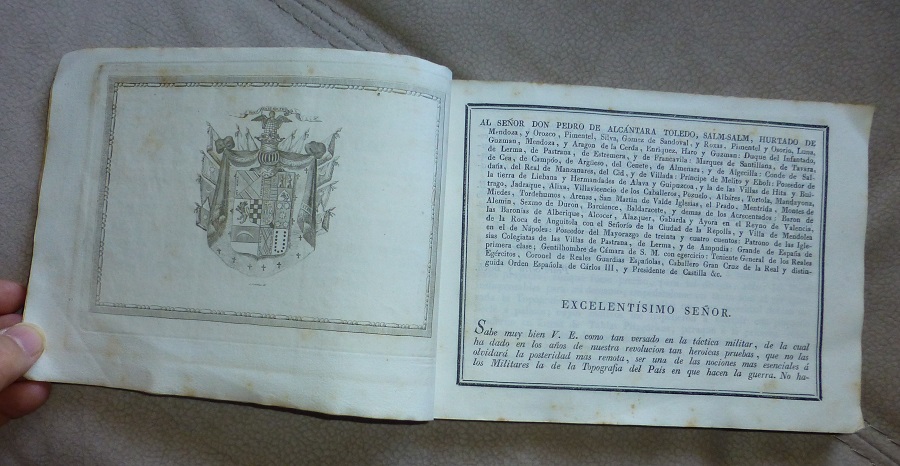 AL SEÑOR DON PEDRO DE ALCÁNTARA TOLEDO, SALM-SALM, HURTADO DE
Mendoza, y Orozco, Pimentel, Silva, Gomez de Sandoval, y Roxas, Pimentel y Osorio, Luna,
Guzman, Mendoza, y Aragon de la Cerda, Enriquez, Haro y Guzman: Duque del Infantado,
de Lerma, de Pastrana, de Estremera, y de Francavila: Marques de Santillana, de Tavara,
de Cea, de Campóo, de Argüeso, del Cenete, de Almenara, y de Algecilla: Conde de Sal-
daña, del Real de Manzanares, del Cid, y de Villada: Príncipe de Melito y Eboli: Poseedor de
la tierra de Liebana y Hermandades de Alava y Guipuzcoa, y la de las Villas de Hita y Bui-
trago, Jadraque, Alixa, Villavicencio de los Caballeros, Pozuelo, Albáres, Tortola, Mandayona,
Miedes, Tordehumos, Arenas, San Martin de Valde Iglesias, el Prado, Mentrida, Montes de
Alamin, Sexmo de Duron, Barcience, Baldaracete, y demas de los Acrecentados: Baron de
las Baronías de Alberique, Alcocer, Alazquer, Gabarda y Ayora en el Reyno de Valencia,
de la Roca de Anguitola con el Señorío de la Ciudad de la Repolla, y Villa de Mendoles
en el de Nápoles: Poseedor del Mayorazgo de treinta y cuatro cuentos: Patrono de las Igle-
sias Colegiatas de las Villas de Pastrana, de Lerma, y de Ampudia: Grande de España de
primera clase; Gentilhombre de Cámara de S. M. con egercicio: Teniente General de los Reales
Egércitos, Coronel de Reales Guardias Españolas, Caballero Gran Cruz de la Real y distin-
guida Orden Española de Cárlos III, y Presidente de Castilla &c.
EXCELENTÍSIMO SEÑOR.
Sabe muy bien V. E. como tan versado en la táctica militar, de la cual
ha dado en los años de nuestra revolucion tan heroicas pruebas, que no las
olvidará la posteridad mas remota, ser una de las nociones mas esenciales á
los Militares la de la Topografia del País en que hacen la guerra. No ha-